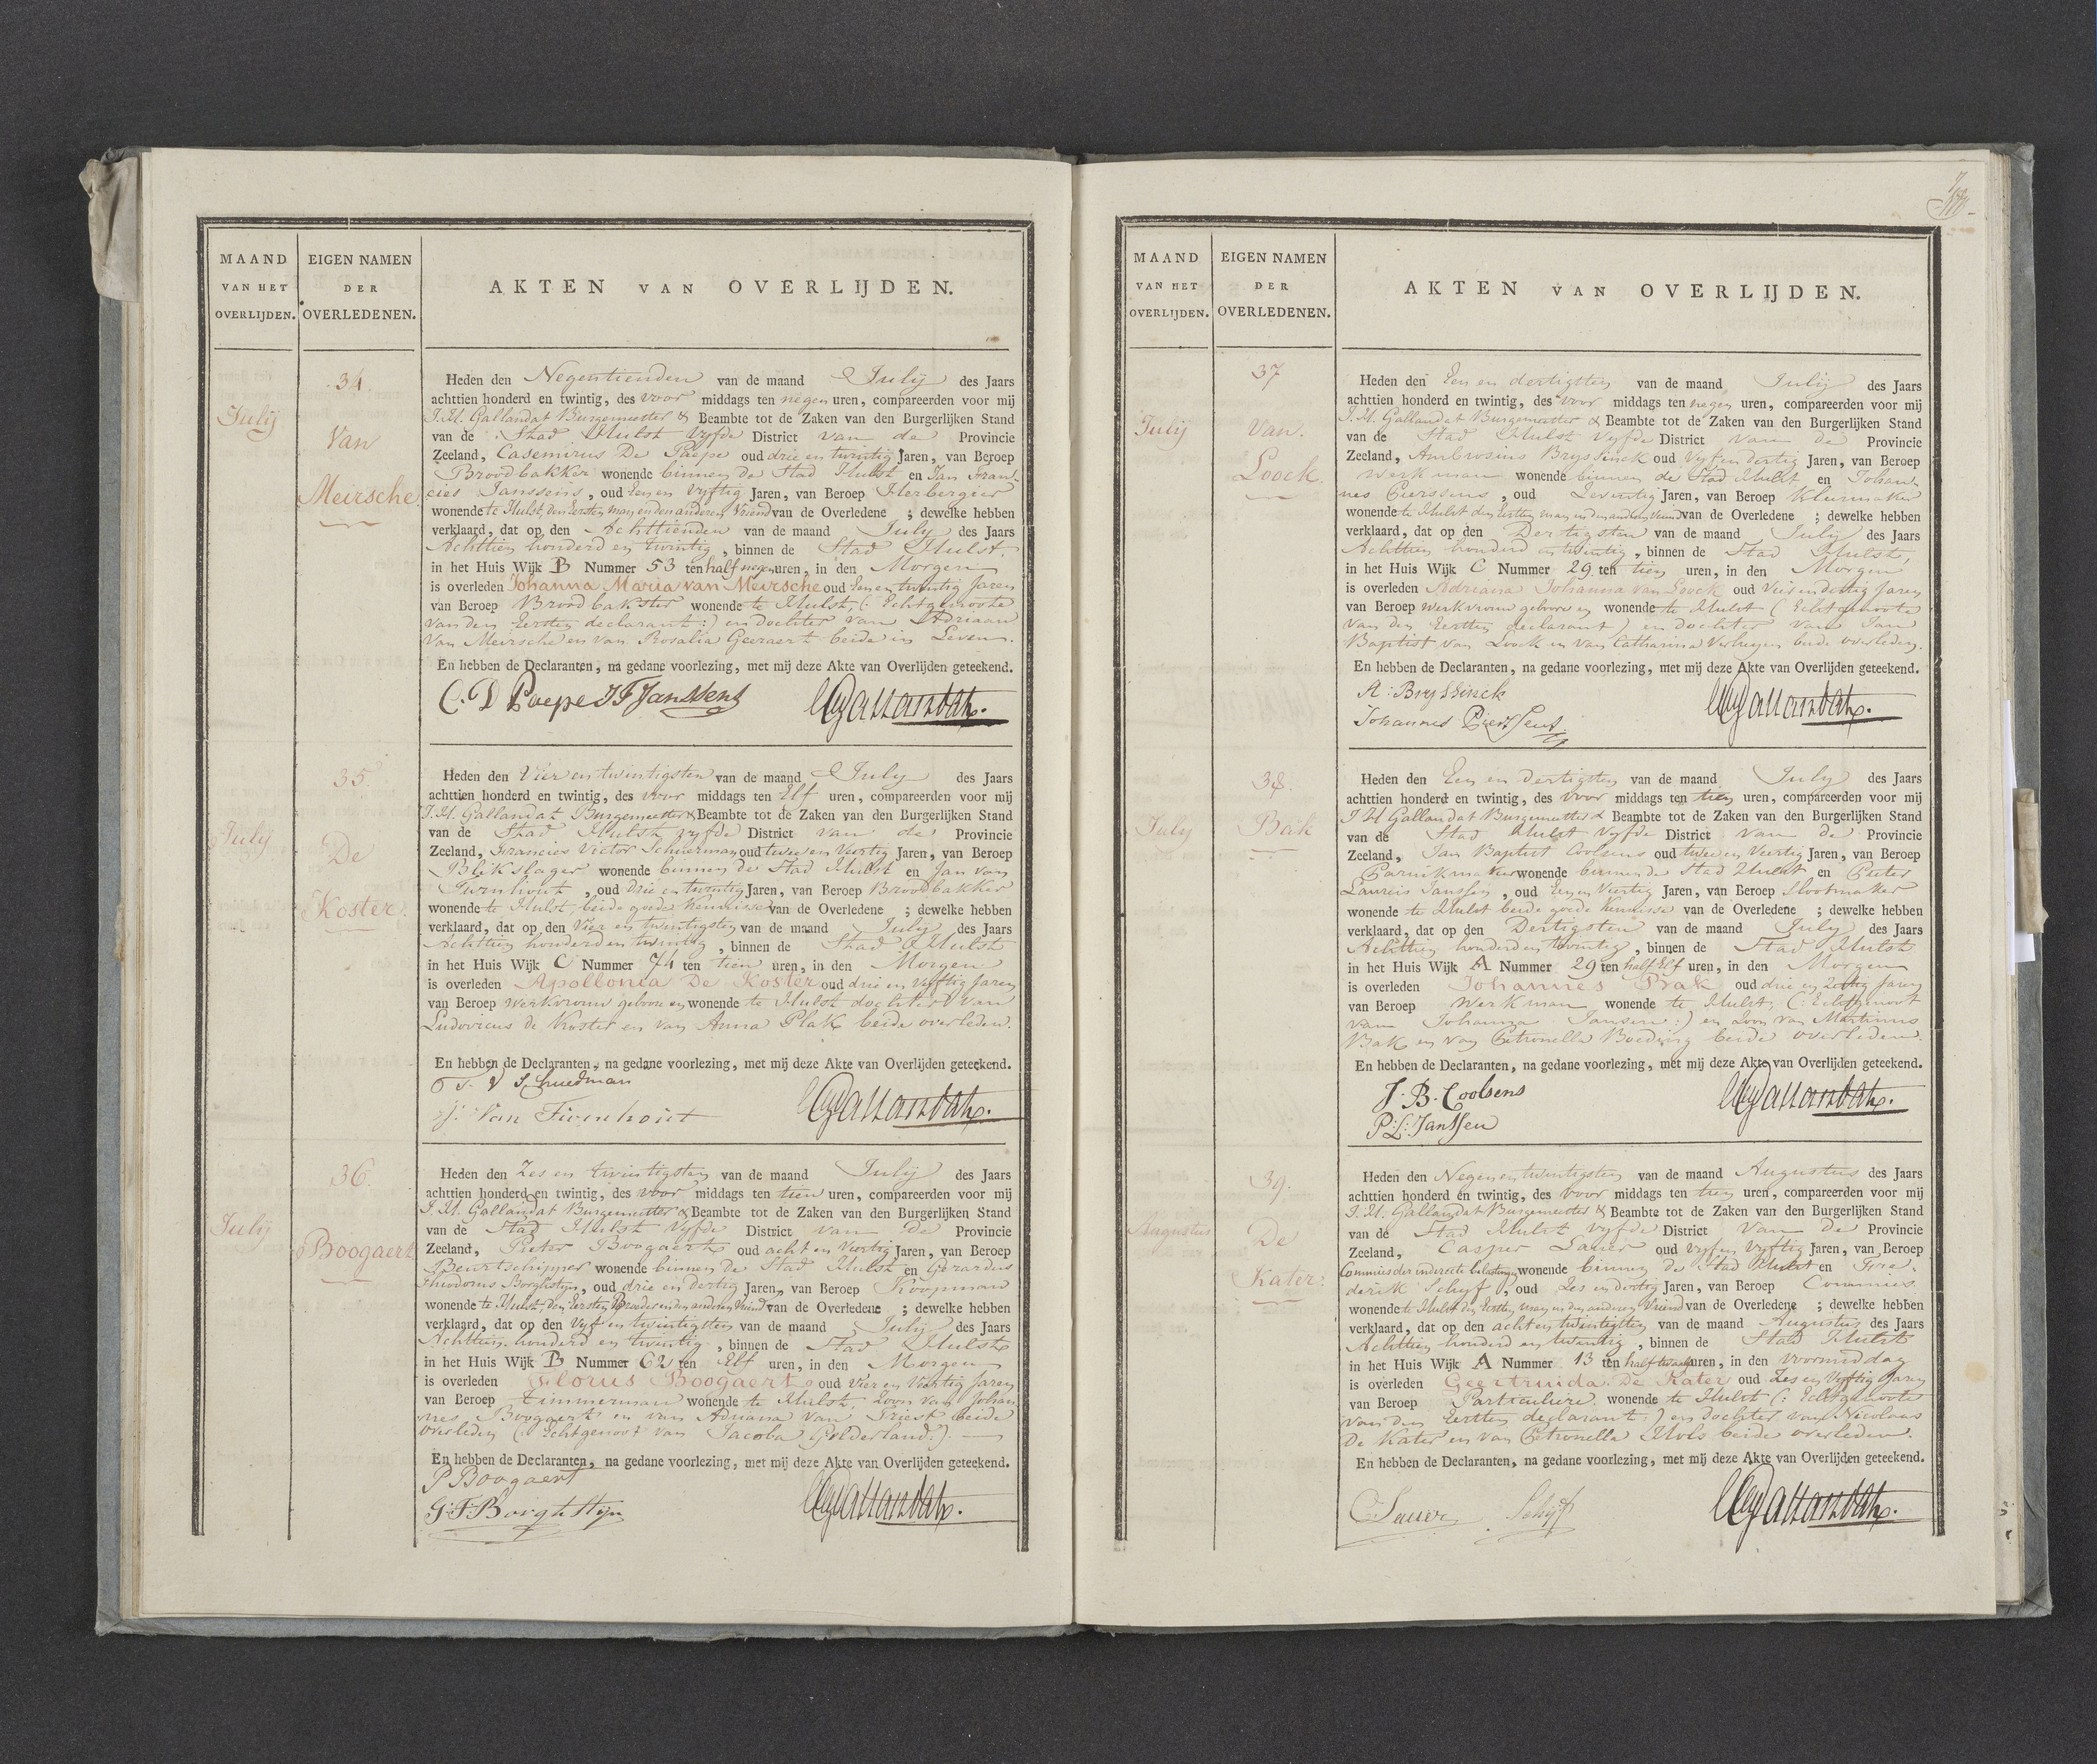 MAAND
VAN HET
OVERLIJDEN.
EIGEN NAMEN
DER
OVERLEDENEN.
AKTEN VAN OVERLIJDEN.
July
34.
Van
Meirsche
Heden den Negentienden van de maand July des Jaars
achttien honderd en twintig, des voor middags ten negen uren, compareerden voor mij
J.H. Gallandat Burgemeester & Beambte tot de Zaken van den Burgerlijken Stand
van de Stad Hulst vyfde District van de Provincie
Zeeland, Casemirus De Paepe oud drie en twintig Jaren, van Beroep
Broodbakker wonende binnen de Stad Hulst en Jan Fran-
cies Janssens, oud Een en vyftig Jaren, van Beroep Herbergier
wonende te Hulst, den Eersten man en den anderen Vriend van de Overledene ; dewelke hebben
verklaard, dat op den Achttienden van de maand July des Jaars
Achttien honderd en twintig, binnen de Stad Hulst
in het Huis Wijk B Nummer 53 ten half negen uren, in den Morgen
is overleden Johanna Maria van Meirsche oud Een en twintig Jaren
van Beroep Broodbakster wonende te Hulst, (: Echtgenoote
van den Eersten declarant :) en dochter van Adriaan
Van Meirsche en van Rosalia Geeraert beide in Leven.
En hebben de Declaranten, na gedane voorlezing, met mij deze Akte van Overlijden geteekend.
C. D Paepe J F Janssens JHGallandat.
July
35.
De
Koster.
Heden den Vier en twintigsten van de maand July des Jaars
achttien honderd en twintig, des voor middags ten Elf uren, compareerden voor mij
J.H. Gallandat Burgemeester & Beambte tot de Zaken van den Burgerlijken Stand
van de Stad Hulst vyfde District van de Provincie
Zeeland, Francies Victor Schuerman oud twee en Veertig Jaren, van Beroep
Blikslager wonende binnen de Stad Hulst en Jan van
Turnhout, oud drie en twintig Jaren, van Beroep Broodbakker
wonende te Hulst, beide goede Kennisse van de Overledene ; dewelke hebben
verklaard, dat op den Vier en twintigsten van de maand July des Jaars
Achttien honderd en twintig, binnen de Stad Hulst
in het Huis Wijk C Nummer 74 ten tien uren, in den Morgen
is overleden Apollonia De Koster oud drie en vyftig Jaren
van Beroep werkvrouw geboren en wonende te Hulst dochter van
Ludovicus de Koster en van Anna Plak beide overleden.
En hebben de Declaranten, na gedane voorlezing, met mij deze Akte van Overlijden geteekend.
F. V Schuerman
J. Van Turnhout JHGallandat.
July
36.
Boogaert
Heden den Zes en twintigsten van de maand July des Jaars
achttien honderd en twintig, des voor middags ten tien uren, compareerden voor mij
J.H. Gallandat Burgemeester & Beambte tot de Zaken van den Burgerlijken Stand
van de Stad Hulst vyfde District van de Provincie
Zeeland, Pieter Boogaert oud acht en Veertig Jaren, van Beroep
Beurtschipper wonende binnen de Stad Hulst en Gerardus
Theodorus Borghstijn, oud drie en dertig Jaren, van Beroep Koopman
wonende te Hulst, den Eersten Broeder en den anderen Vriend van de Overledene ; dewelke hebben
verklaard, dat op den Vyf en twintigsten van de maand July des Jaars
Achttien honderd en twintig, binnen de Stad Hulst
in het Huis Wijk B Nummer 62 ten Elf uren, in den Morgen
is overleden Florus Boogaert oud Vier en Veertig Jaren
van Beroep timmerman wonende te Hulst, Zoon van Johan
nes Boogaert en van Adriana van Triest beide
overleden (: Echtgenoot van Jacoba Gelderland :).
En hebben de Declaranten, na gedane voorlezing, met mij deze Akte van Overlijden geteekend.
P Boogaert
G: T: Borghstijn JHGallandat.
MAAND
VAN HET
OVERLIJDEN.
EIGEN NAMEN
DER
OVERLEDENEN.
AKTEN VAN OVERLIJDEN.
July
37
Van.
Loock.
Heden den Een en dertigsten van de maand July des Jaars
achttien honderd en twintig, des voor middags ten negen uren, compareerden voor mij
J.H. Gallandat Burgemeester & Beambte tot de Zaken van den Burgerlijken Stand
van de Stad Hulst vyfde District van de Provincie
Zeeland, Ambrosius Bryssinck oud Vyf en dertig Jaren, van Beroep
werkman wonende binnen de Stad Hulst en Johan-
nes Pierssens, oud Zeventig Jaren, van Beroep Kleermaker
wonende te Hulst den Eersten man en den anderen Vriend van de Overledene ; dewelke hebben
verklaard, dat op den Dertigsten van de maand July des Jaars
Achttien honderd en twintig, binnen de Stad Hulst,
in het Huis Wijk C Nummer 29 ten tien uren, in den Morgen
is overleden Adriana Johanna van Loock oud Vier en dertig Jaren
van Beroep werkvrouw geboren en wonende te Hulst (Echtgenoote
van den Eersten declarant) en dochter van Jan
Baptist van Loock en van Catharina Verhagen beide overleden.
En hebben de Declaranten, na gedane voorlezing, met mij deze Akte van Overlijden geteekend.
A: Bryssinck
Johannes Pierssens JHGallandat.
July
38.
Bak
Heden den Een en dertigsten van de maand July des Jaars
achttien honderd en twintig, des voor middags ten tien uren, compareerden voor mij
J H Gallandat Burgemeester & Beambte tot de Zaken van den Burgerlijken Stand
van de Stad Hulst vyfde District van de Provincie
Zeeland, Jan Baptist Coolsens oud twee en Veertig Jaren, van Beroep
Paruikmaker wonende binnen de Stad Hulst en Pieter
Laureis Janssen, oud Een en Viertig Jaren, van Beroep Slootmaker
wonende te Hulst beide goede Kennisse van de Overledene ; dewelke hebben
verklaard, dat op den Dertigsten van de maand July des Jaars
Achttien honderd en twintig, binnen de Stad Hulst
in het Huis Wijk A Nummer 29 ten half Elf uren, in den Morgen
is overleden Johannes Bak oud drie en Zestig Jaren
van Beroep Werkman wonende te Hulst, (: Echtgenoot
van Johanna Jansen :) en Zoon van Martinus
Bak en van Petronella Boeding beide overleden.
En hebben de Declaranten, na gedane voorlezing, met mij deze Akte van Overlijden geteekend.
J. B. Coolsens
P: L: Janssen JHGallandat.
Augustus
39.
De
Kater.
Heden den Negen en twintigsten van de maand Augustus des Jaars
achttien honderd en twintig, des voor middags ten tien uren, compareerden voor mij
J.H. Gallandat Burgemeester & Beambte tot de Zaken van den Burgerlijken Stand
van de Stad Hulst vyfde District van de Provincie
Zeeland, Casper Sauer oud vyf en vyftig Jaren, van Beroep
Commies der indirecte belastingen wonende binnen de Stad Hulst en Fre-
derik Schyf, oud Zes en dertig Jaren, van Beroep Commies
wonende te Hulst den Eersten man en den anderen Vriend van de Overledene ; dewelke hebben
verklaard, dat op den acht en twintigsten van de maand Augustus des Jaars
Achttien honderd en twintig, binnen de Stad Hulst
in het Huis Wijk A Nummer 13 ten half twaalf uren, in den voormiddag
is overleden Geertruida De Kater oud Zes en Vyftig Jaren
van Beroep Particuliere wonende te Hulst (: Echtgenoote
van den Eersten declarant :) en dochter van Nicolaas
De Kater en van Petronella Mols beide overleden.
En hebben de Declaranten, na gedane voorlezing, met mij deze Akte van Overlijden geteekend.
C: Sauer Schyf JHGallandat.